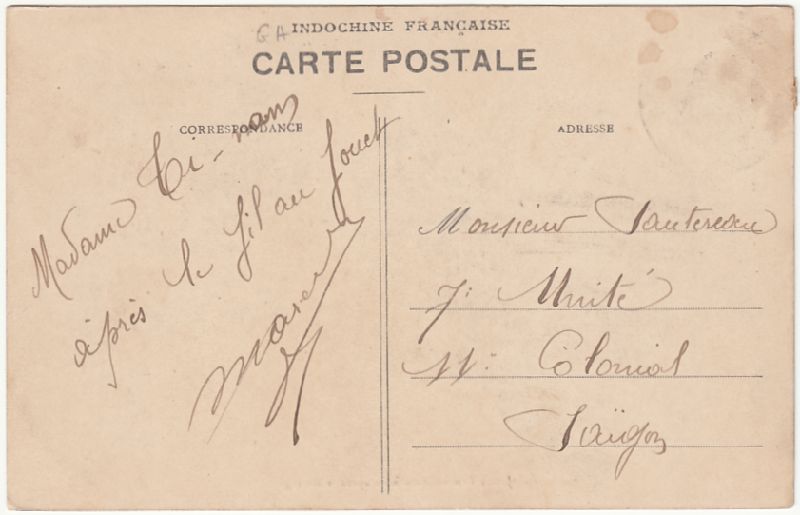 GA
INDOCHINE FRANÇAISE
CARTE POSTALE
CORRESPONDANCE
Madame Ti-nam
après le fil au fouet
ADRESSE
Monsieur Sautereau
7: Unité
11: Colonial
Saïgon